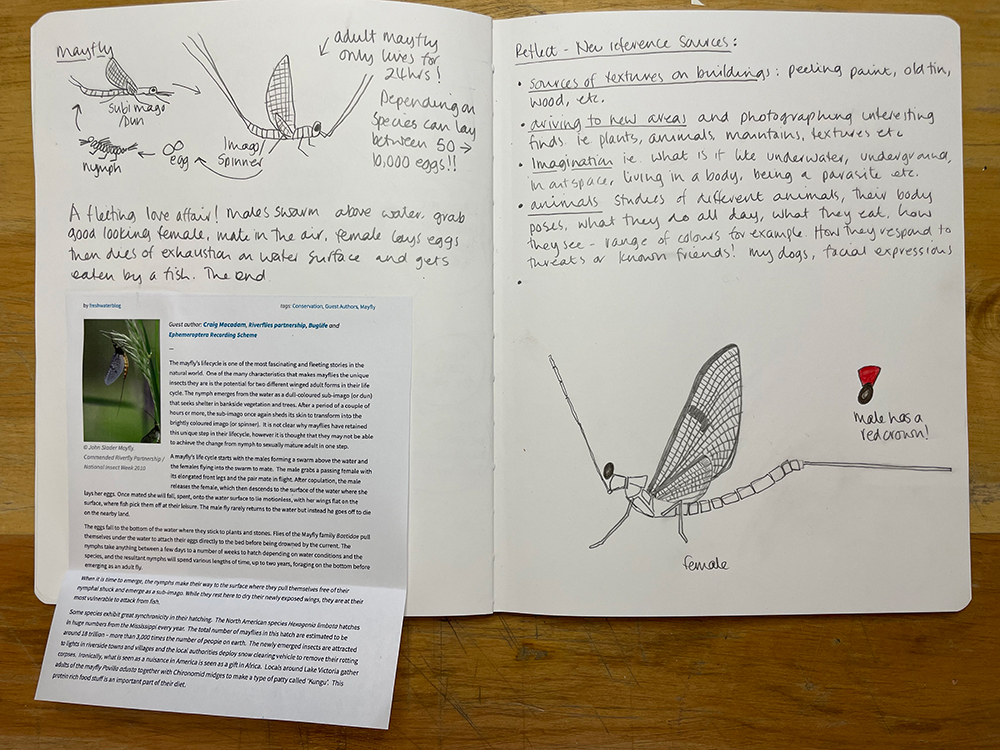 mayfly
subimago
/Dun
nymph
egg
Imago/
Spinner
adult mayfly
only lives for
24hrs!
Depending on
Species can lay
between 50 →
10,000 eggs!!
A fleeting love affair! males swarm above water, grab
good looking female, mate in the air, female lays eggs
then dies of exhaustion on water surface and gets
eaten by a fish. The end.
by freshwaterblog
tags: Conservation, Guest Authors, Mayfly
Guest author: Craig Macadam, Riverflies partnership, Buglife and
Ephemeroptera Recording Scheme
—
The mayfly's lifecycle is one of the most fascinating and fleeting stories in the
natural world. One of the many characteristics that makes mayflies the unique
insects they are is the potential for two different winged adult forms in their life
cycle. The nymph emerges from the water as a dull-coloured sub-imago (or dun)
that seeks shelter in bankside vegetation and trees. After a period of a couple of
hours or more, the sub-imago once again sheds its skin to transform into the
brightly coloured imago (or spinner). It is not clear why mayflies have retained
this unique step in their lifecycle, however it is thought that they may not be able
to achieve the change from nymph to sexually mature adult in one step.
© John Slader Mayfly.
Commended Riverfly Partnership /
National Insect Week 2010
A mayfly's lifecycle starts with the males forming a swarm above the water and
the females flying into the swarm to mate. The male grabs a passing female with
its elongated front legs and the pair mate in flight. After copulation, the male
releases the female, which then descends to the surface of the water where she
lays her eggs. Once mated she will fall, spent, onto the water surface to lie motionless, with her wings flat on the
surface, where fish pick them off at their leisure. The male fly rarely returns to the water but instead he goes off to die
on the nearby land.
The eggs fall to the bottom of the water where they stick to plants and stones. Flies of the Mayfly family Baetidae pull
themselves under the water to attach their eggs directly to the bed before being drowned by the current. The
nymphs take anything between a few days to a number of weeks to hatch depending on water conditions and the
species, and the resultant nymphs will spend various lengths of time, up to two years, foraging on the bottom before
emerging as an adult fly.
When it is time to emerge, the nymphs make their way to the surface where they pull themselves free of their
nymphal shuck and emerge as a sub-imago. While they rest here to dry their newly exposed wings, they are at their
most vulnerable to attack from fish.
Some species exhibit great synchronicity in their hatching. The North American species Hexagenia limbata hatches
in huge numbers from the Mississippi every year. The total number of mayflies in this hatch are estimated to be
around 18 trillion – more than 3,000 times the number of people on earth. The newly emerged insects are attracted
to lights in riverside towns and villages and the local authorities deploy snow clearing vehicle to remove their rotting
corpses. Ironically, what is seen as a nuisance in America is seen as a gift in Africa. Locals around Lake Victoria gather
adults of the mayfly Povilla adusta together with Chironomid midges to make a type of patty called 'Kungu'. This
protein rich food stuff is an important part of their diet.
Reflect - New reference Sources:
• Sources of textures on buildings: peeling paint, old tin,
wood, etc.
• driving to new areas and photographing interesting
finds. ie plants, animals, mountains, textures etc
• Imagination ie. what is it like underwater, underground,
in outspace, living in a body, being a parasite etc.
• animals studies of different animals, their body
poses, what they do all day, what they eat, how
they see - range of colours for example. How they respond to
threats or known friends! my dogs, facial expressions
•
male has a
red crown!
female